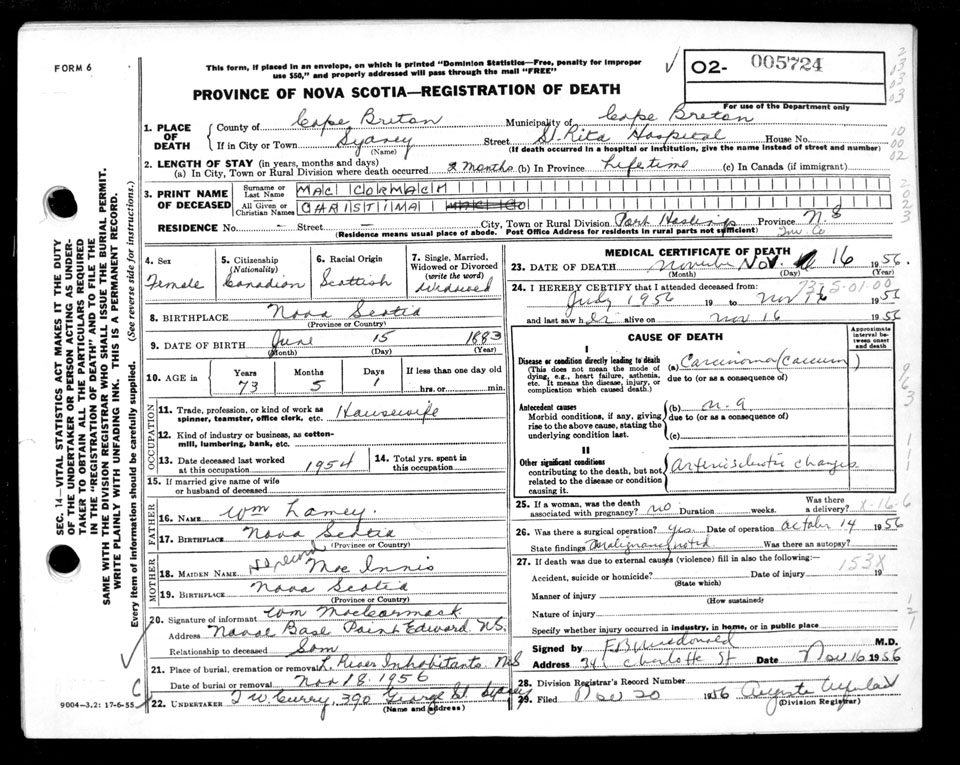 FORM 6
This form, if placed in an envelope, on which is printed "Dominion Statistics—Free, penalty for improper
use $50," and properly addressed will pass through the mail "FREE"
02- 005724
PROVINCE OF NOVA SCOTIA—REGISTRATION OF DEATH
For use of the Department only
1. PLACE OF DEATH
County of Cape Breton Municipality of Cape Breton
If in City or Town Sydney Street St. Rita Hospital House No.
(Name) (If death occurred in a hospital or institution, give the name instead of street and number)
2. LENGTH OF STAY (in years, months and days)
(a) In City, Town or Rural Division where death occurred 2 months (b) In Province Lifetime (c) In Canada (if immigrant)
3. PRINT NAME OF DECEASED
Surname or Last Name MAC CORMACK
All Given or Christian Names CHRISTINA
RESIDENCE No. - Street City, Town or Rural Division Port Hastings Province N.S
(Residence means usual place of abode. Post Office Address for residents in rural parts not sufficient) Inv. Co
4. Sex Female
5. Citizenship (Nationality) Canadian
6. Racial Origin Scottish
7. Single, Married, Widowed or Divorced (write the word) Widowed
8. BIRTHPLACE Nova Scotia
(Province or Country)
9. DATE OF BIRTH June 15 1883
(Month) (Day) (Year)
10. AGE in Years 73 Months 5 Days 1 If less than one day old hrs. or min.
OCCUPATION
11. Trade, profession, or kind of work as spinner, teamster, office clerk, etc. Housewife
12. Kind of industry or business, as cotton-mill, lumbering, bank, etc.
13. Date deceased last worked at this occupation 1954
14. Total yrs. spent in this occupation
15. If married give name of wife or husband of deceased
FATHER
16. Name Wm Lamey.
17. Birthplace Nova Scotia
(Province or Country)
MOTHER
18. Maiden Name Mac Innis
19. Birthplace Nova Scotia
(Province or Country)
20. Signature of informant Wm MacCormack
Address Naval Base Point Edward N.S.
Relationship to deceased Son
21. Place of burial, cremation or removal L. River Inhabitants N.S
Date of burial or removal Nov 18. 1956
22. UNDERTAKER T W. Curry, 390 George St. Sydney
(Name and address)
MEDICAL CERTIFICATE OF DEATH
23. DATE OF DEATH Nov. 16 1956.
(Month) (Day) (Year)
24. I HEREBY CERTIFY that I attended deceased from:
7375-01-00
July 1956 19 to Nov 16 1956
and last saw her alive on Nov 16 1956
CAUSE OF DEATH
Approximate interval between onset and death
I
Disease or condition directly leading to death
(This does not mean the mode of dying, e.g., heart failure, asthenia, etc. It means the disease, injury, or complication which caused death.)
(a) Carcinoma (Caecum)
due to (or as a consequence of)
Antecedent causes
Morbid conditions, if any, giving rise to the above cause, stating the underlying condition last.
(b) n-a
due to (or as a consequence of)
(c)
II
Other significant conditions
contributing to the death, but not related to the disease or condition causing it.
Arteriosclerotic changes
25. If a woman, was the death associated with pregnancy? no Duration weeks. Was there a delivery? X-16-6
26. Was there a surgical operation? yes. Date of operation October 14 1956
State findings Malignancy noted Was there an autopsy?
27. If death was due to external causes (violence) fill in also the following:—
153X
Accident, suicide or homicide? Date of injury 19
(State which)
Manner of injury
(How sustained)
Nature of injury
Specify whether injury occurred in industry, in home, or in public place
Signed by M.D.
Address 341 Charlotte St Date Nov 16 1956
28. Division Registrar's Record Number
29. Filed Nov 20 1956
(Division Registrar)
9004—3.2: 17-6-55
SEC. 14—VITAL STATISTICS ACT MAKES IT THE DUTY
OF THE UNDERTAKER OR PERSON ACTING AS UNDER-
TAKER TO OBTAIN ALL THE PARTICULARS REQUIRED
IN THE "REGISTRATION OF DEATH" AND TO FILE THE
SAME WITH THE DIVISION REGISTRAR WHO SHALL ISSUE THE BURIAL PERMIT.
WRITE PLAINLY WITH UNFADING INK. THIS IS A PERMANENT RECORD.
Every item of information should be carefully supplied. (See reverse side for instructions.)